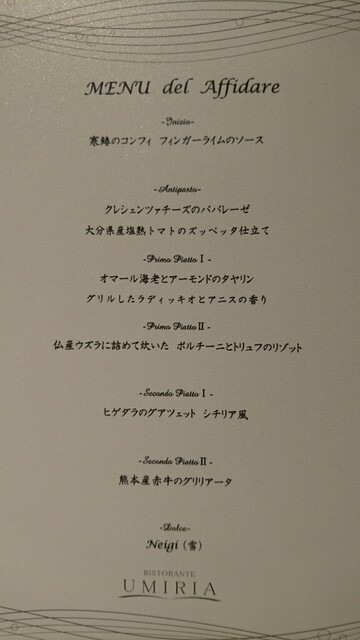 MENU del Affidare
-Inizio-
寒鰆のコンフィ フィンガーライムのソース
-Antipasto-
クレシェンツァチーズのババレーゼ
大分県産塩熟トマトのズッペッタ仕立て
-Primo Piatto I -
オマール海老とアーモンドのタヤリン
グリルしたラディッキオとアニスの香り
-Primo Piatto II -
仏産ウズラに詰めて炊いた ポルチーニとトリュフのリゾット
-Secondo Piatto I -
ヒゲダラのグアツェット シチリア風
-Secondo Piatto II -
熊本産赤牛のグリリアータ
-Dolce-
Neigi (雪)
RISTORANTE
UMIRIA